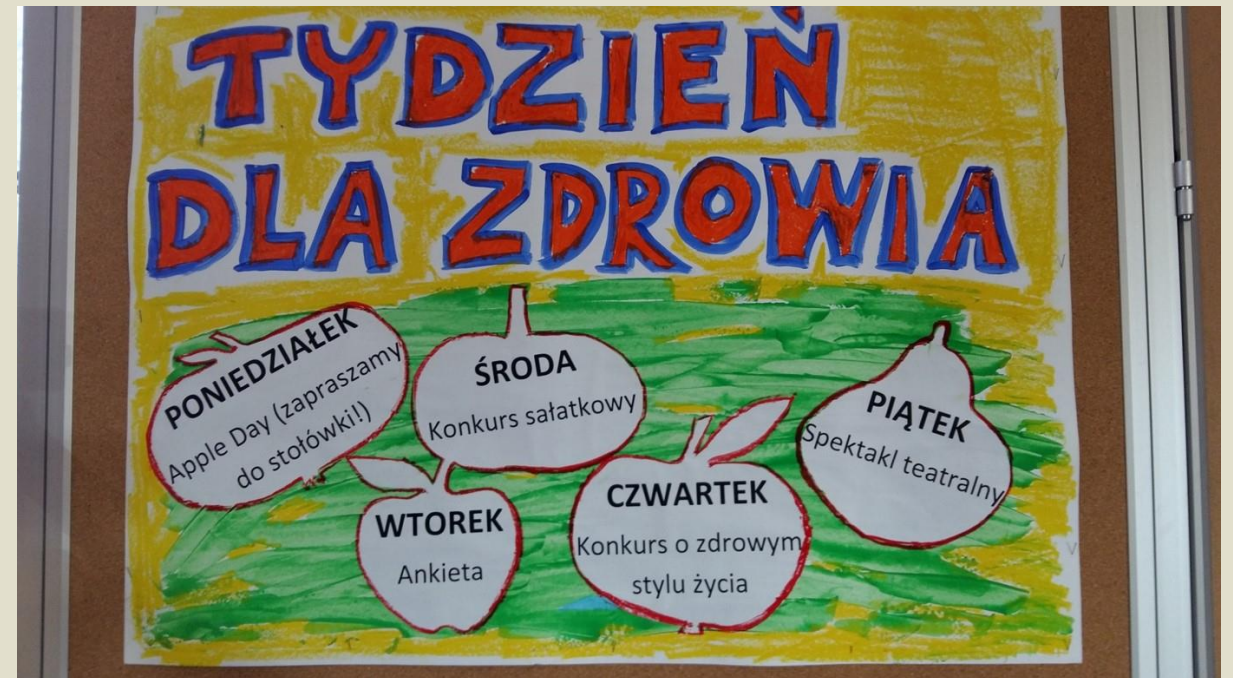 TYDZIEŃ
DLA ZDROWIA
PONIEDZIAŁEK
Apple Day (zapraszamy
do stołówki!)
WTOREK
Ankieta
ŚRODA
Konkurs sałatkowy
CZWARTEK
Konkurs o zdrowym
stylu życia
PIĄTEK
Spektakl teatralny